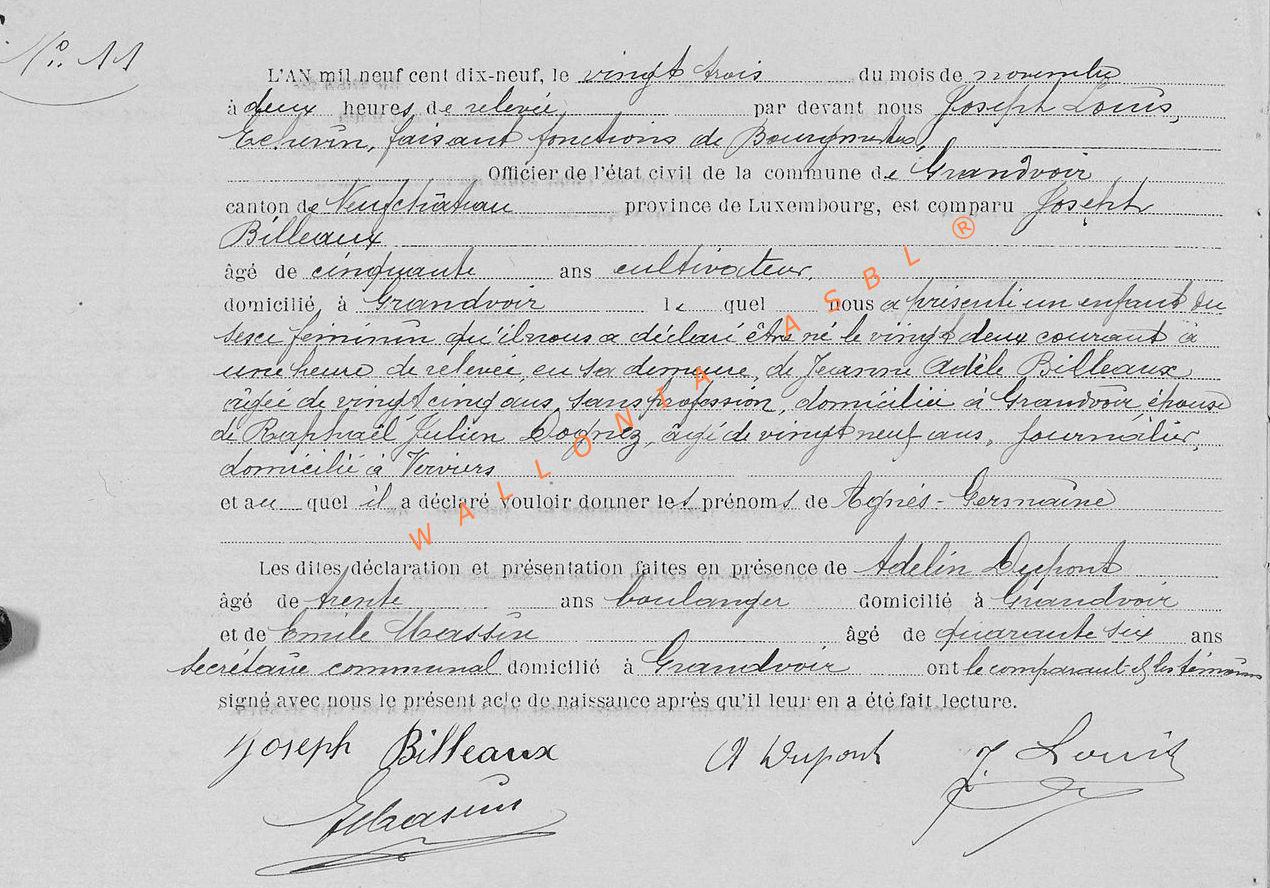 N° 11
L'AN mil neuf cent dix-neuf, le vingt trois du mois de novembre
à deux heures de relevée par devant nous Joseph Louis,
Echevin, faisant fonctions de Bourgmestre,
Officier de l'état civil de la commune de Grandvoir
canton de Neufchâteau province de Luxembourg, est comparu Joseph
Billeaux
âgé de cinquante ans cultivateur,
domicilié à Grandvoir le quel nous a présenté un enfant du
sexe féminin qu'il nous a déclaré être né le vingt deux courant à
une heure de relevée, en sa demeure, de Jeanne Adèle Billeaux
âgée de vingt cinq ans, sans profession, domiciliée à Grandvoir, épouse
de Raphaël Julien Dognez, âgé de vingt neuf ans, journalier,
domicilié à Verviers
et au quel il a déclaré vouloir donner les prénoms de Agnès-Germaine
Les dites déclaration et présentation faites en présence de Adelin Dupont
âgé de trente ans boulanger domicilié à Grandvoir
et de Emile Massin âgé de quarante six ans
secrétaire communal domicilié à Grandvoir ont le comparant et les témoins
signé avec nous le présent acte de naissance après qu'il leur en a été fait lecture.
Joseph Billeaux A Dupont J. Louis
E Massin
WALLONIA ASBL ®